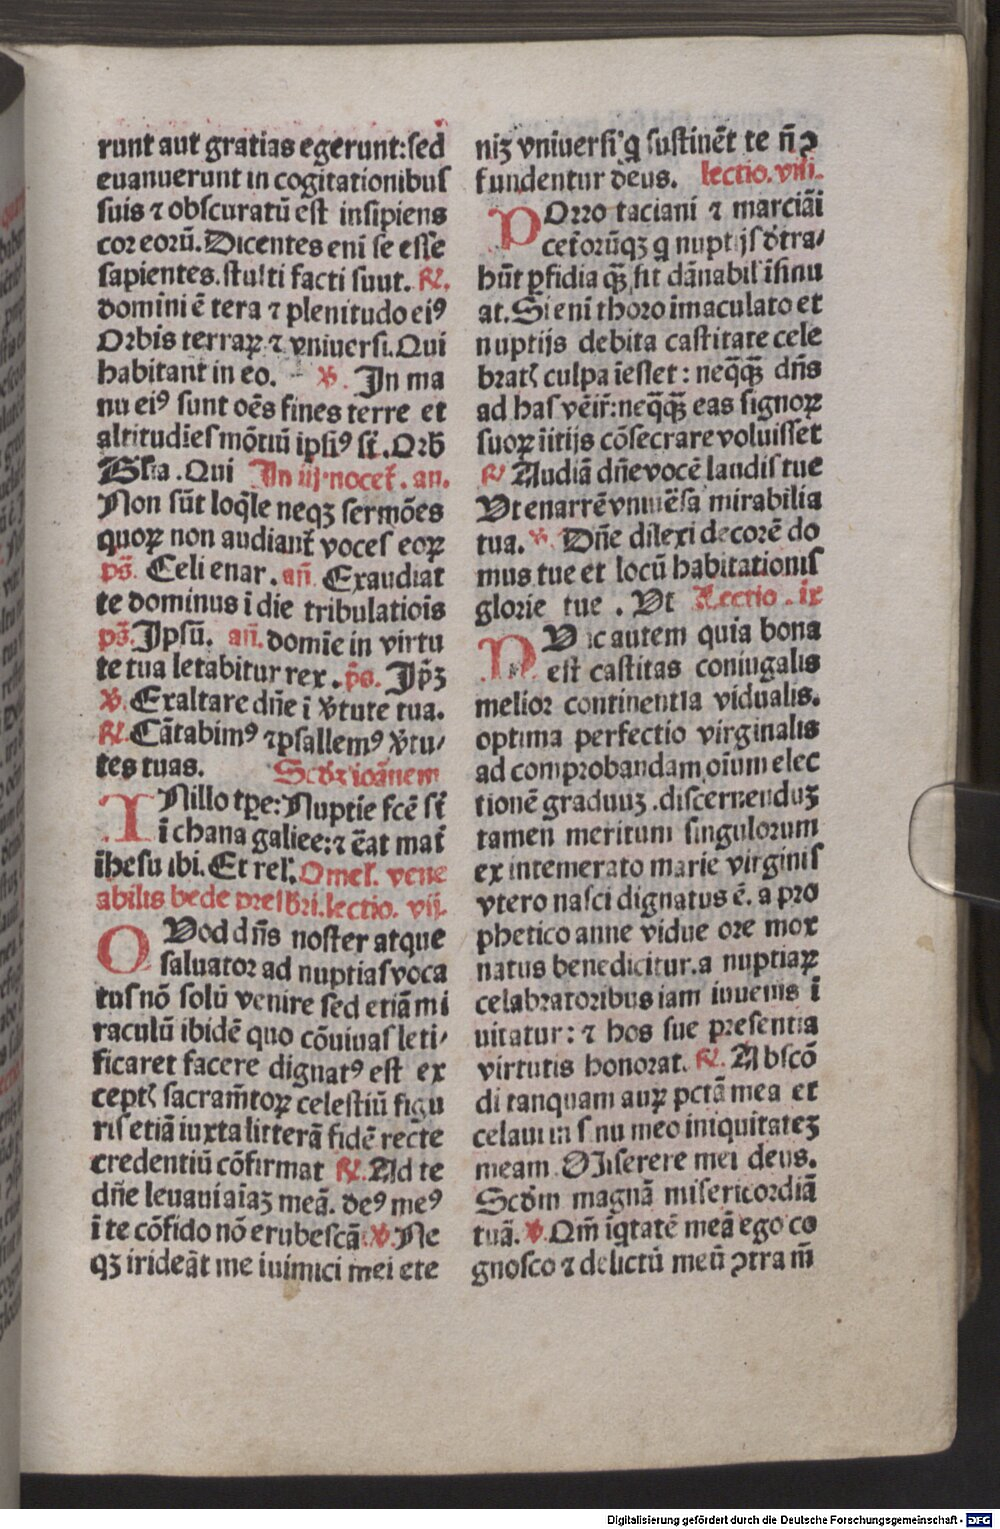 runt aut gratias egerunt:sed
euanuerunt in cogitationibus
suis ⁊ obscuratū est insipiens
cor eorū. Dicentes eni se esse
sapientes. stulti facti suut. ℟.
domini ē tera ⁊ plenitudo eiꝰ
Orbis terraꝝ ⁊ vniuersi. Qui
habitant in eo. ℣. In ma
nu eiꝰ sunt oēs fines terre et
altitudies mōtiū ipsiꝰ st̄. Orb̄
Gl'ia. Qui In iij. nocet̄. an.
Non sūt loq̄le neqꝫ sermōes
quoꝝ non audiant̄ voces eoꝝ
ps̄. Celi enar. an̄. Exaudiat
te dominus i die tribulatiois
ps̄. Ipsū. an̄. domīe in virtu
te tua letabitur rex. ps̄. Ip̄ꝫ
℣. Exaltare dn̄e ī v̄tute tua.
℟. Cātabimꝰ ⁊psallemꝰ v̄tu/
tes tuas. Scd̄ꝫ ioānem
IN illo tp̄e: Nuptie fcē st̄
ī chana galiee:⁊ ēat mat̄
ihesu ibi. Et rel'. Omel'. vene
abilis bede presb̄ri. lectio. vij.
QVod dn̄s noster atque
saluator ad nuptias voca
tus nō solū venire sed etiā mi
raculū ibidē quo cōuiuas leti/
ficaret facere dignatꝰ est ex
cept' sacram̄toꝝ celestiū figu
ris etiā iuxta litterā fidē recte
credentiū cōfirmat ℟. Ad te
dn̄e leuaui aīaꝫ meā. deꝰ meꝰ
ī te cōfido nō erubescā. ℣. Ne
qꝫ irideāt me iuimici mei ete
niꝫ vniuersi q̇ sustinēt te n̄ ꝯ
fundentur deus. lectio. viij.
POrro taciani ⁊ marciāi
cet̄orūqꝫ q nuptijs d̄tra/
hūt ꝑfidia qꝫ̄ sit dānabil' īsinu
at. Si eni thoro imaculato et
nuptijs debita castitate cele
brat' culpa īesset: neq̄qꝫ̄ dn̄s
ad has vēir̄:neq̄qꝫ̄ eas signoꝝ
suoꝝ iitijs cōsecrare voluisset
℟ Audiā dn̄e vocē laudis tue
Vt enarrē vniuēsa mirabilia
tua. ℣. Dn̄e dilexi decorē do
mus tue et locū habitationis
glorie tue . Vt Lectio . ix
NVnc autem quia bona
est castitas coniugalis
melior continentia vidualis.
optima perfectio virginalis
ad comprobandam oīum elec
tionē graduuꝫ . discernenduꝫ
tamen meritum singulorum
ex intemerato marie virginis
vtero nasci dignatus ē. a pro
phetico anne vidue ore mox
natus benedicitur. a nuptiaꝝ
celabratoribus iam iuuenis ī
uitatur: ⁊ hos sue presentia
virtutis honorat. ℟. Abscō
di tanquam auꝝ pctā mea et
celaui in sinu meo iniquitateꝫ
meam. Miserere mei deus.
Scd̄m magnā misericordiā
tuā. ℣. Qm̄ iq̇tatē meā ego co
gnosco ⁊ delictū meū ꝯtra m̄
Digitalisierung gefördert durch die Deutsche Forschungsgemeinschaft - DFG